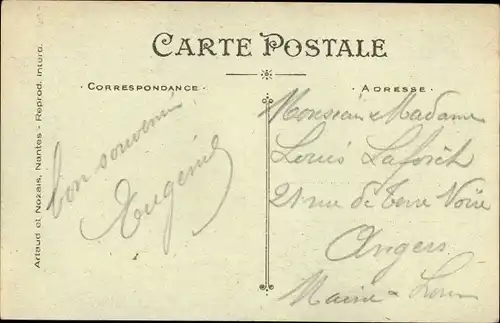 CARTE POSTALE
· CORRESPONDANCE ·
· ADRESSE ·
Artaud et Nozais, Nantes - Reprod. interd.
bon souvenir
Eugénie
Monsieur & Madame
Louis Laforêt
21 rue de Terre Noire
Angers
Maine & Loire